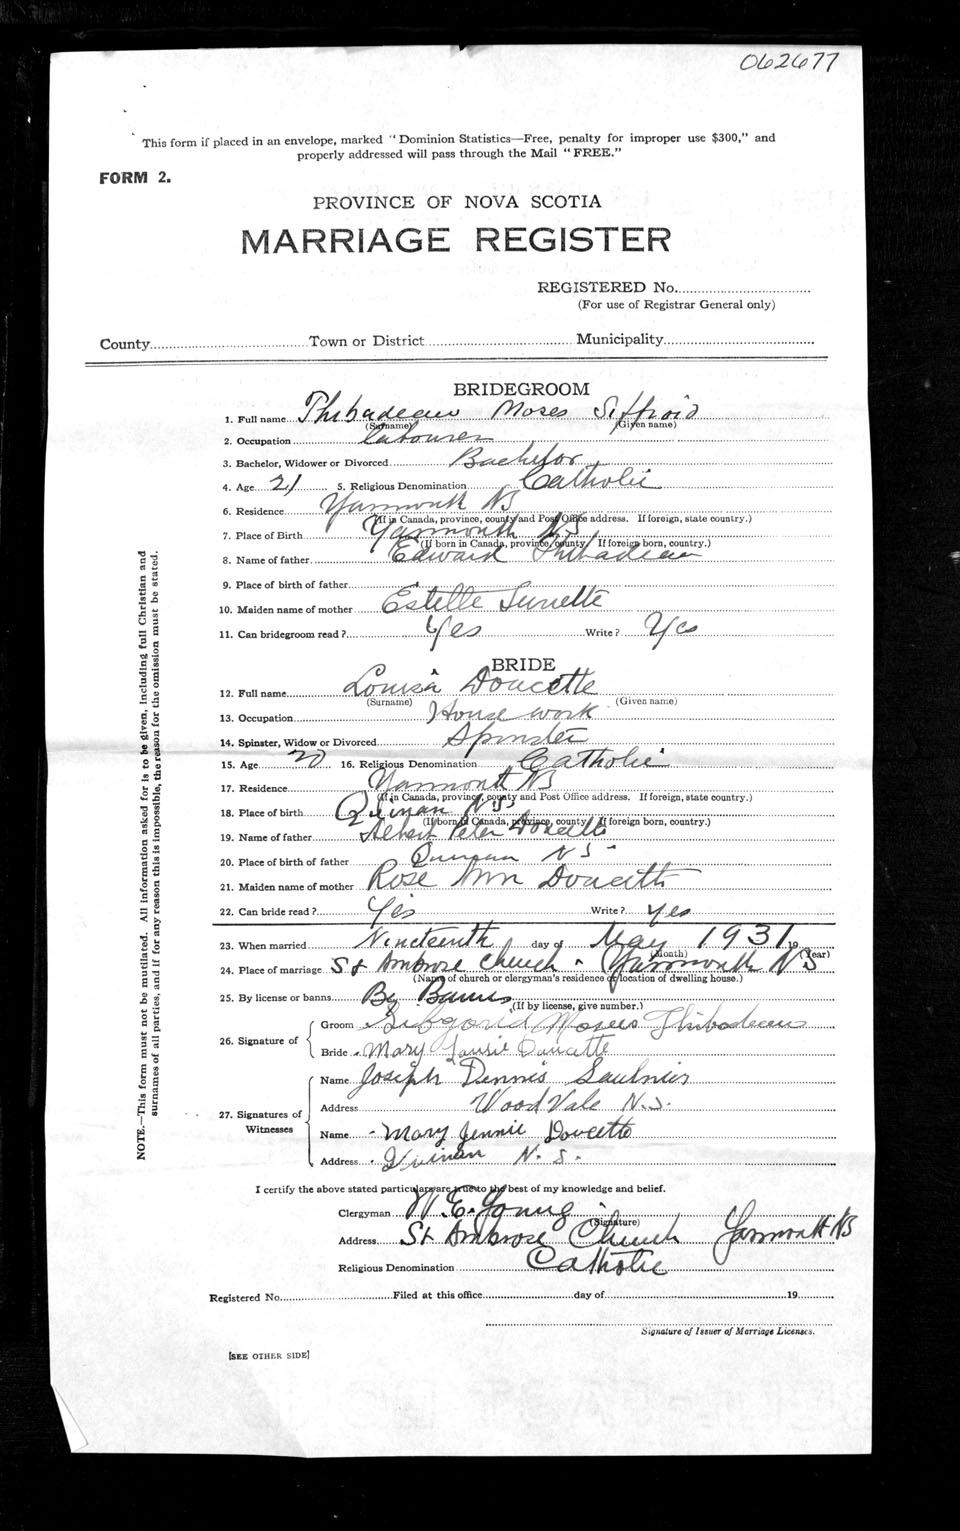 062677
This form if placed in an envelope, marked "Dominion Statistics—Free, penalty for improper use $300," and
properly addressed will pass through the Mail "FREE."
FORM 2.
PROVINCE OF NOVA SCOTIA
MARRIAGE REGISTER
REGISTERED No.
(For use of Registrar General only)
County Town or District Municipality
BRIDEGROOM
1. Full name Thibadeau Moses Siffroid
(Surname) (Given name)
2. Occupation Labourer
3. Bachelor, Widower or Divorced Bachelor
4. Age 21 5. Religious Denomination Catholic
6. Residence Yarmouth NS
(If in Canada, province, county and Post Office address. If foreign, state country.)
7. Place of Birth Yarmouth NS
(If born in Canada, province, county. If foreign born, country.)
8. Name of father Edward Thibadeau
9. Place of birth of father
10. Maiden name of mother Estelle
11. Can bridegroom read? Yes Write? Yes
BRIDE
12. Full name Louisa Doucette
(Surname) (Given name)
13. Occupation House work
14. Spinster, Widow or Divorced Spinster
15. Age 20 16. Religious Denomination Catholic
17. Residence Yarmouth NS
(If in Canada, province, county and Post Office address. If foreign, state country.)
18. Place of birth Quinan N.S
(If born in Canada, province, county. If foreign born, country.)
19. Name of father Albert Peter Doucette
20. Place of birth of father Quinan N S
21. Maiden name of mother Rose Ann Doucette
22. Can bride read? Yes Write? Yes
23. When married Nineteenth day of May 1931 19
(Month) (Year)
24. Place of marriage St Ambrose Church Yarmouth NS
(Name of church or clergyman's residence or location of dwelling house.)
25. By license or banns By Banns
(If by license, give number.)
26. Signature of
Groom Moses Thibodeau
Bride Mary Doucette
27. Signatures of Witnesses
Name Joseph Dennis Saulnier
Address Wood Vale N.S.
Name Mary Jennie Doucette
Address Quinan N. S.
I certify the above stated particulars are true to the best of my knowledge and belief.
Clergyman W. E. Young
(Signature)
Address St Ambrose Church Yarmouth NS
Religious Denomination Catholic
Registered No. Filed at this office day of 19
Signature of Issuer of Marriage Licenses.
[SEE OTHER SIDE]
NOTE.—This form must not be mutilated. All information asked for is to be given, including full Christian and
surnames of all parties, and if for any reason this is impossible, the reason for the omission must be stated.